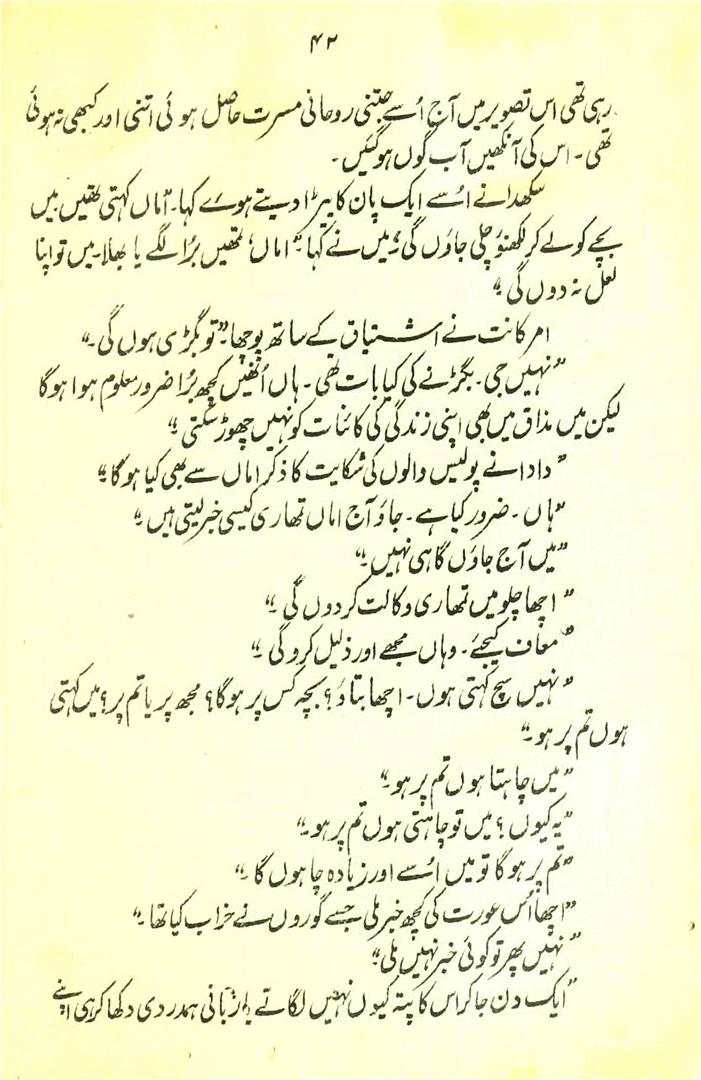 ۴۲
رہی تھی اس تصویر میں آج اُسے جتنی روحانی مسرت حاصل ہوئی اتنی اور کبھی نہ ہوئی
تھی۔ اس کی آنکھیں آب گوں ہوگئیں۔
سکھدا نے اُسے ایک پان کا بیڑا دیتے ہوئے کہا۔ "اماں کہتی تھیں میں
بچے کو لے کر لکھنؤ چلی جاؤں گی" میں نے کہا۔ "اماں! تمھیں بُرا لگے یا بھلا۔ میں تو اپنا
لعل نہ دوں گی۔"
امرکانت نے اشتیاق کے ساتھ پوچھا۔ "تو بگڑی ہوں گی۔"
"نہیں جی۔ بگڑنے کی کیا بات تھی۔ ہاں اُنھیں کچھ بُرا ضرور معلوم ہوا ہوگا
لیکن میں مذاق میں بھی اپنی زندگی کی کائنات کو نہیں چھوڑ سکتی۔"
"دادا نے پولیس والوں کی شکایت کا ذکر اماں سے بھی کیا ہوگا۔"
"ہاں۔ ضرور کیا ہے۔ جاؤ آج اماں تمھاری کیسی خبر لیتی ہیں۔"
"میں آج جاؤں گا ہی نہیں۔"
"اچھا چلو میں تمھاری وکالت کردوں گی۔"
"معاف کیجئے۔ وہاں مجھے اور ذلیل کروگی۔"
"نہیں سچ کہتی ہوں۔ اچھا بتاؤ؟ بچہ کس پر ہوگا؟ مجھ پر یا تم پر؟ میں کہتی
ہوں تم پر ہو۔"
"میں چاہتا ہوں تم پر ہو۔"
"یہ کیوں؟ میں تو چاہتی ہوں تم پر ہو۔"
"تم پر ہوگا تو میں اُسے اور زیادہ چاہوں گا۔"
"اچھا اُس عورت کی کچھ خبر ملی جسے گوروں نے خراب کیا تھا۔"
"نہیں پھر تو کوئی خبر نہیں ملی۔"
"ایک دن جاکر اس کا پتہ کیوں نہیں لگاتے یا زبانی ہمدردی دکھا کر ہی اپنے